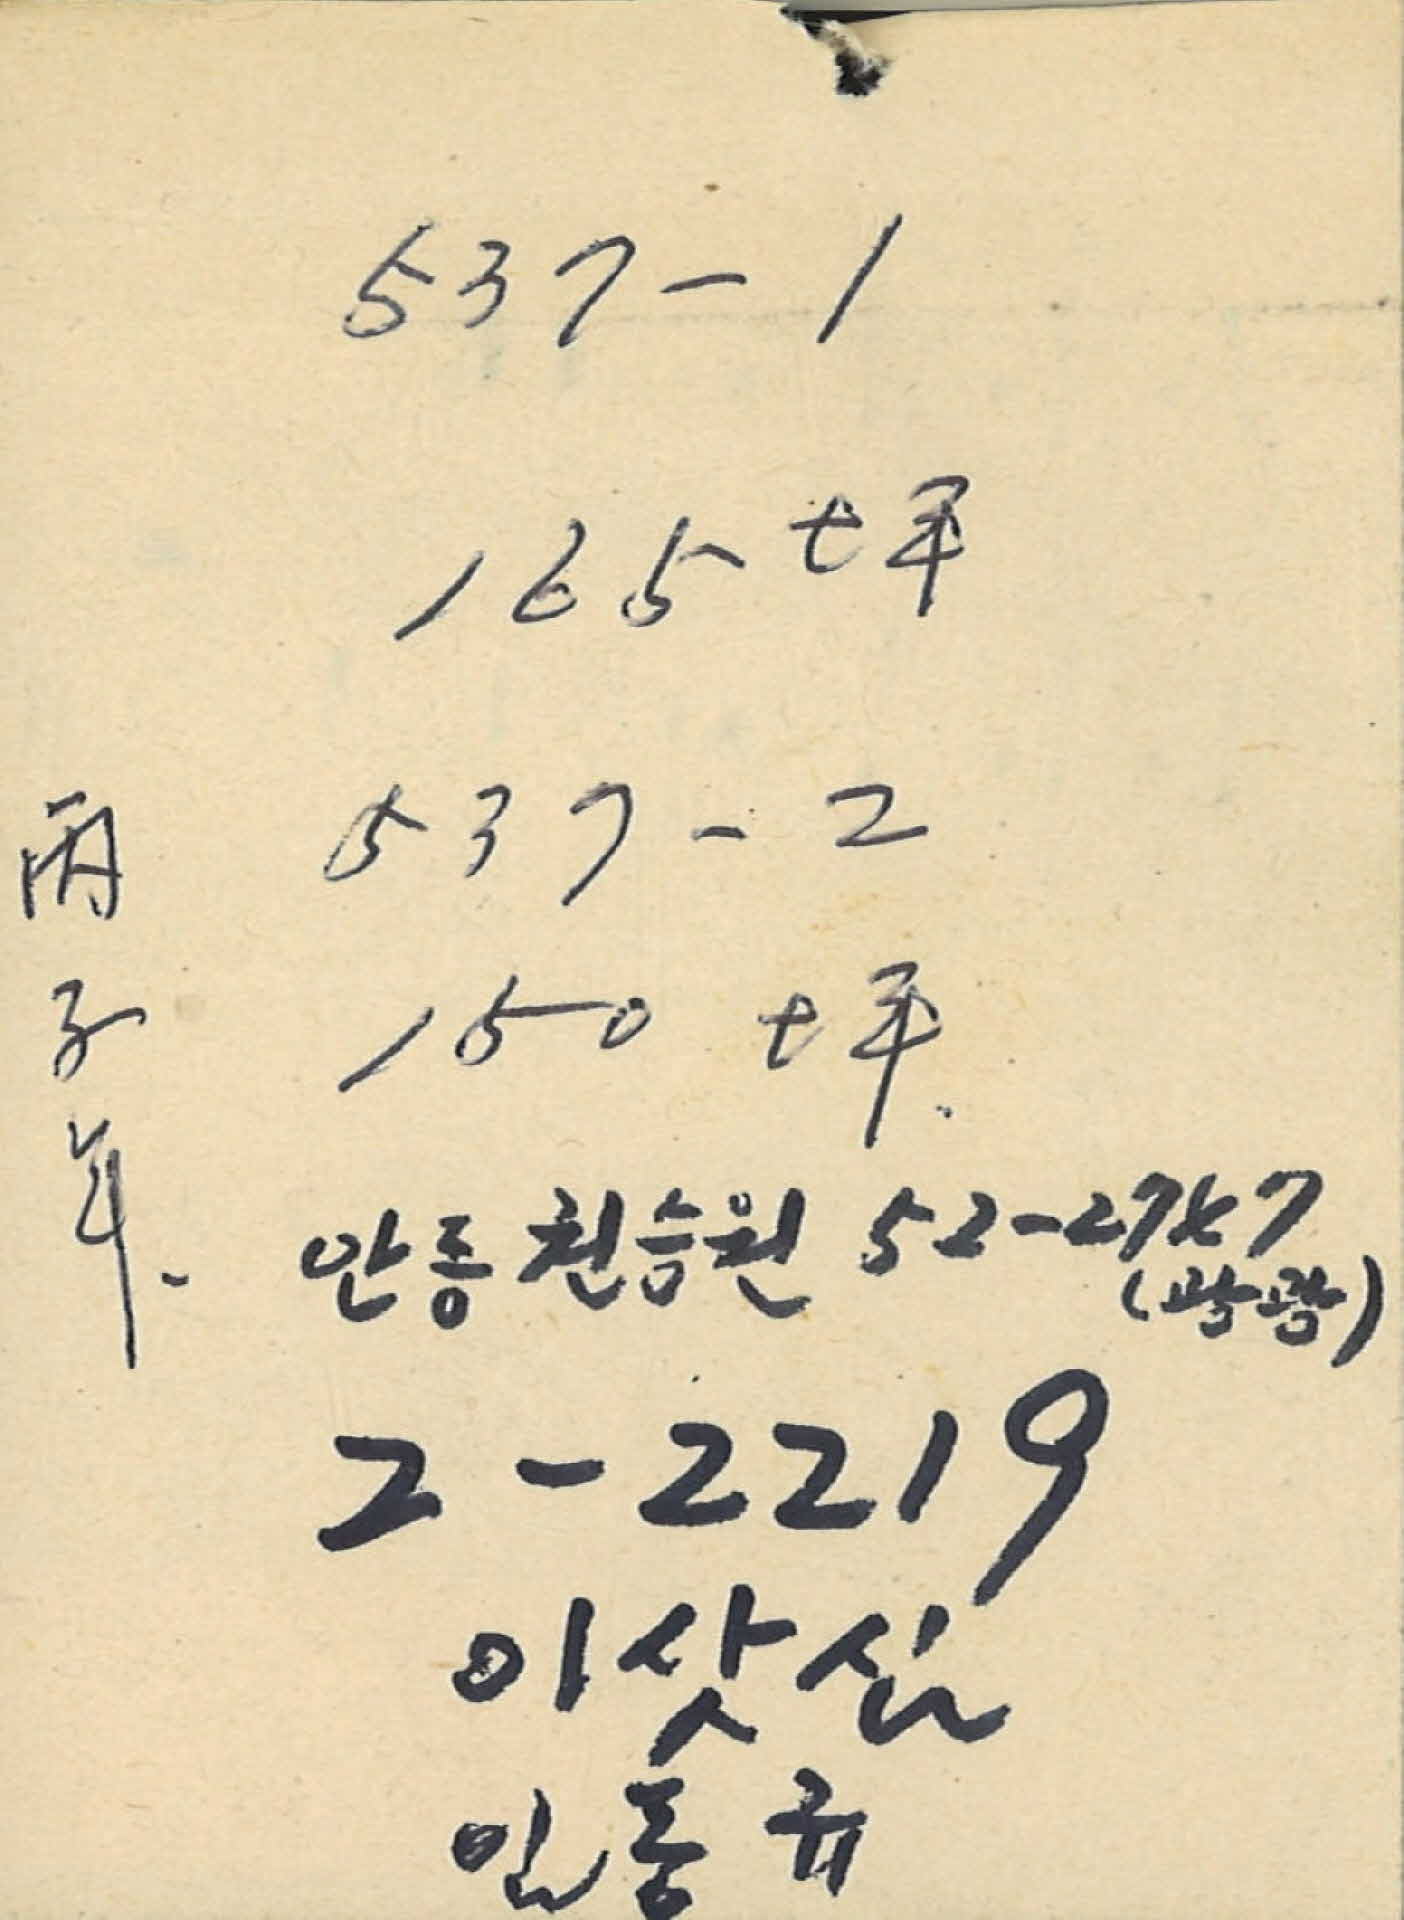 537-1
165 坪
537-2
150 坪.
丙子年.
안동 천승원 52-2767
(광광)
2-2219
이삿신
인동규